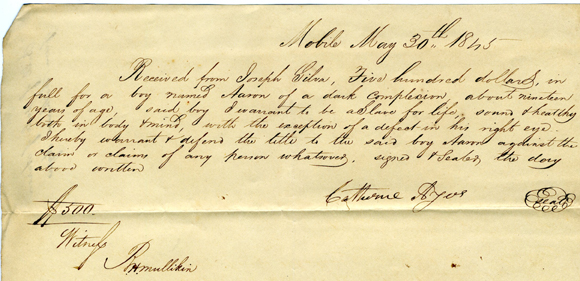 Mobile May 30th 1845
Received from Joseph Silva, Five hundred dollars, in
full for a boy named Aaron of a dark Complexion about nineteen
years of age, said boy I warrant to be a Slave for life, sound & healthy
both in body & mind, with the exception of a defeat in his right eye.
I hereby warrant & defend the title to the said boy Aaron against the
claim or claims of any person whatsover, signed & Sealed, the day
above written
Catherine
Seal
$500.
Witness
Mullikin